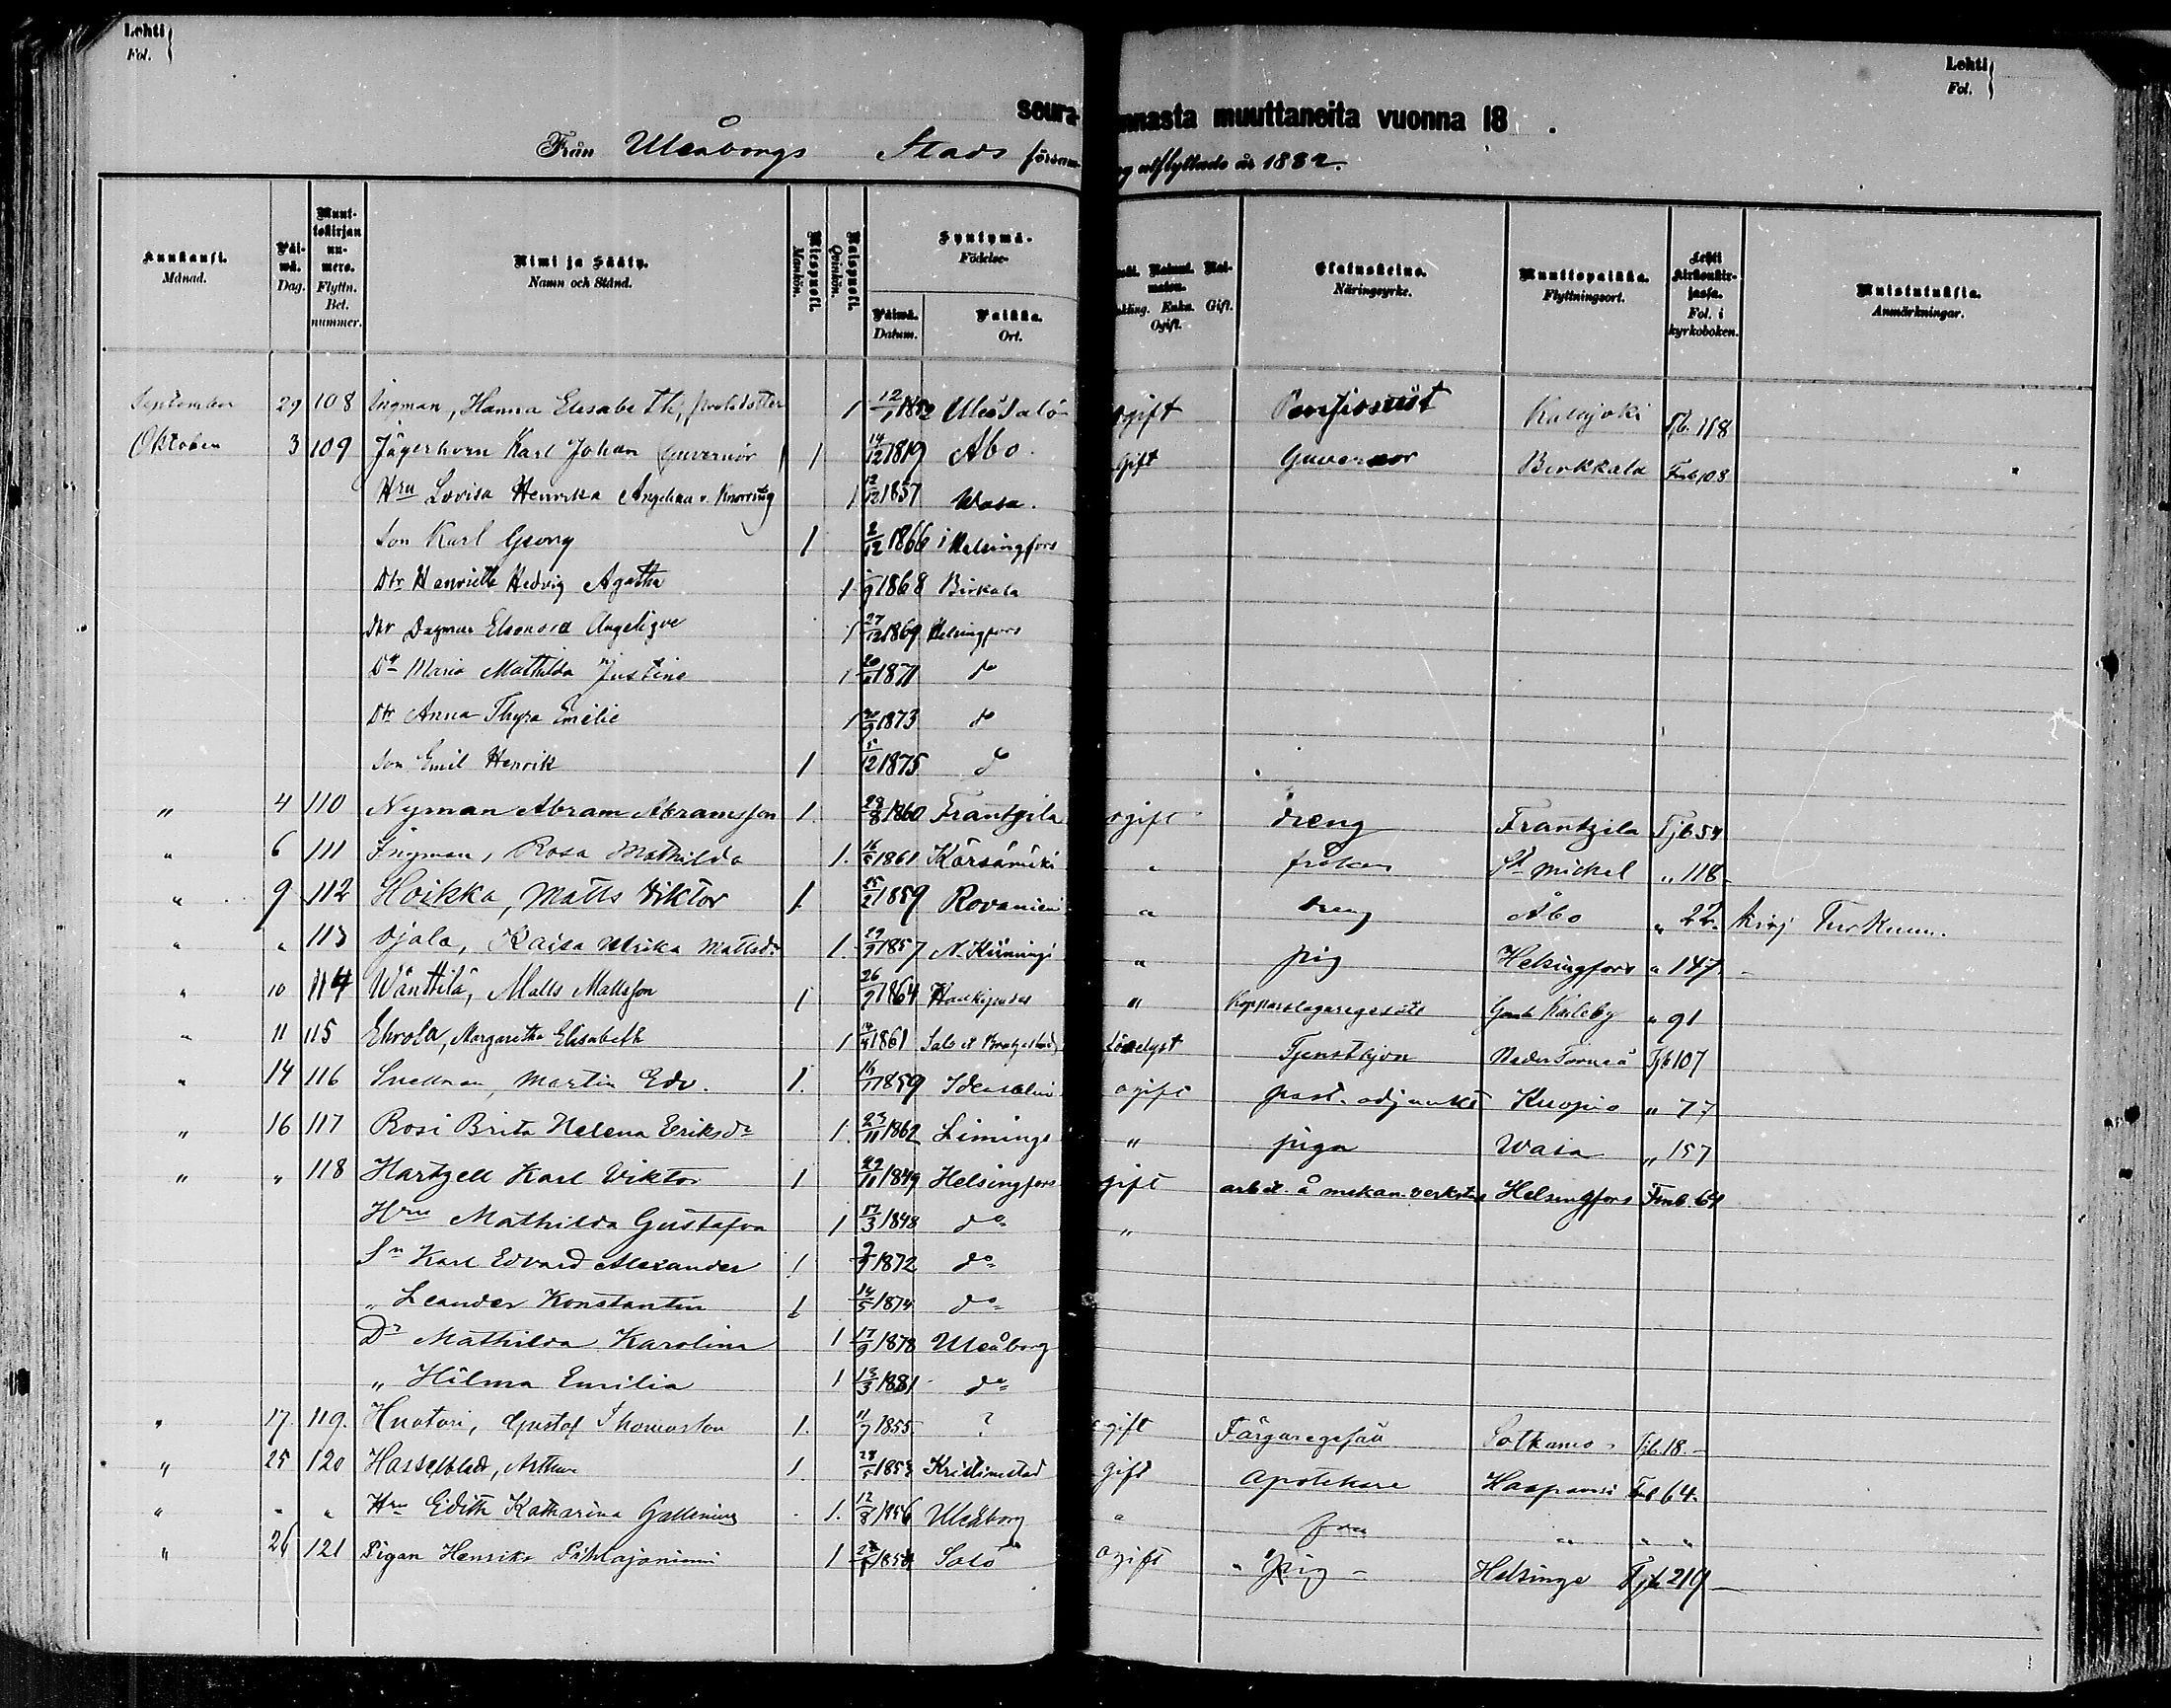 Lehti
Fol.
Lehti
Fol.
seura nnasta muuttaneita vuonna 18 .
Från Uleåborgs Stads försam g utflyttade år 1882.
Kuukausi. Månad. Päi-wä. Dag. Muut-tokirjan nu-mero. Flyttn. Bet. nummer. Nimi ja Sääty. Namn och Stånd. Miespuoli. Mankön. Naispuoli. Qvinkön. Syntymä- Födelse- Päiwä. Datum. Paikka. Ort. Elatuskeino. Näringsyrke. Muuttopaikka. Flyttningsort. Lehti kirkonkir-jassa. Fol. i kyrkoboken. Muistutuksia. Anmärkningar.
September 29 108 Ingman, Hanna Elisabeth, 1 12/1 1852 Uleåsalo ogift Kalajoki
Oktober 3 109 Jägerhorn Karl Johan Guvernör 1 14/12 1819 Åbo. Gift Guvernör Birkkala Fmb 108
Hru Lovisa Henrika Angelina v. Knorring 1 12/12 1837 Wasa.
Son Karl Georg 1 2/12 1866 i Helsingfors
Dtr Henriette Hedvig Agatha 1 1868 Birkala
Dtr Dagmar Eleonora Angelique 1 27/12 1869 Helsingfors
Dr Maria Mathilda Justina 1 1871 do
Dtr Anna Thyra Emilie 1 1873 do
Son Emil Henrik 1 5/12 1875 do
" 4 110 Nyman Abram Abramsson 1. 28/8 1860 Frantzila ogift dreng Frantzila Tjb 54
" 6 111 Ingman, Rosa Mathilda 1. 1861 Kärsämäki " fröken St Michel " 118
" 9 112 Hoikka, Matts Viktor 1. 25/2 1859 Rovaniemi " dreng Åbo " 22. kirj Turkuun.
" " 113 Ojala, Kaisa Ulrika Mattsdr 1. 29/9 1857 N. Kiimingi " pig Helsingfors " 147
" 10 114 Wänttilä, Matts Mattsson 1 1864 Haukipudas " Kopparslagaregesäll Gamla Karleby " 91
" 11 115 Ehrola, Margaretha Elisabeth 1 1861 Salo et Brahestad Löselegt Tjenstehjon Neder Torneå Tjb 107
" 14 116 Snellman, Martin Edv. 1. 1859 Idensalmi ogift past. adjunkt Kuopio " 77
" 16 117 Rosi Brita Helena Eriksdr 1. 23/11 1862 Liminge " piga Wasa " 157
" " 118 Hartzell Karl Viktor 1 1849 Helsingfors gift arbet. å mekan. verkstad Helsingfors Fmb. 64
Hru Mathilda Gustafva 1 1848 do "
Sn Karl Edvard Alexander 1 1872 do
" Leander Konstantin 1 14/5 1874 do
Dr Mathilda Karolina 1 17/9 1878 Uleåborg
" Hilma Emilia 1 13/3 1881 do
" 17 119. Huotari, Gustaf Thomasson 1. 11/7 1855 ? ogift Färgaregesäll Sotkamo Tjb. 18.
" 25 120 Hasselblad, Arthur 1. 1853 Kristinestad gift Apotekare Haapavesi Fmb 64
" " " Hru Edith Katharina Gallenius 1. 12/8 1856 Uleåborg " fru " " "
" 26 121 Pigan Henrika Pihlajaniemi 1 Salo ogift " pig Helsinge Tjb 219